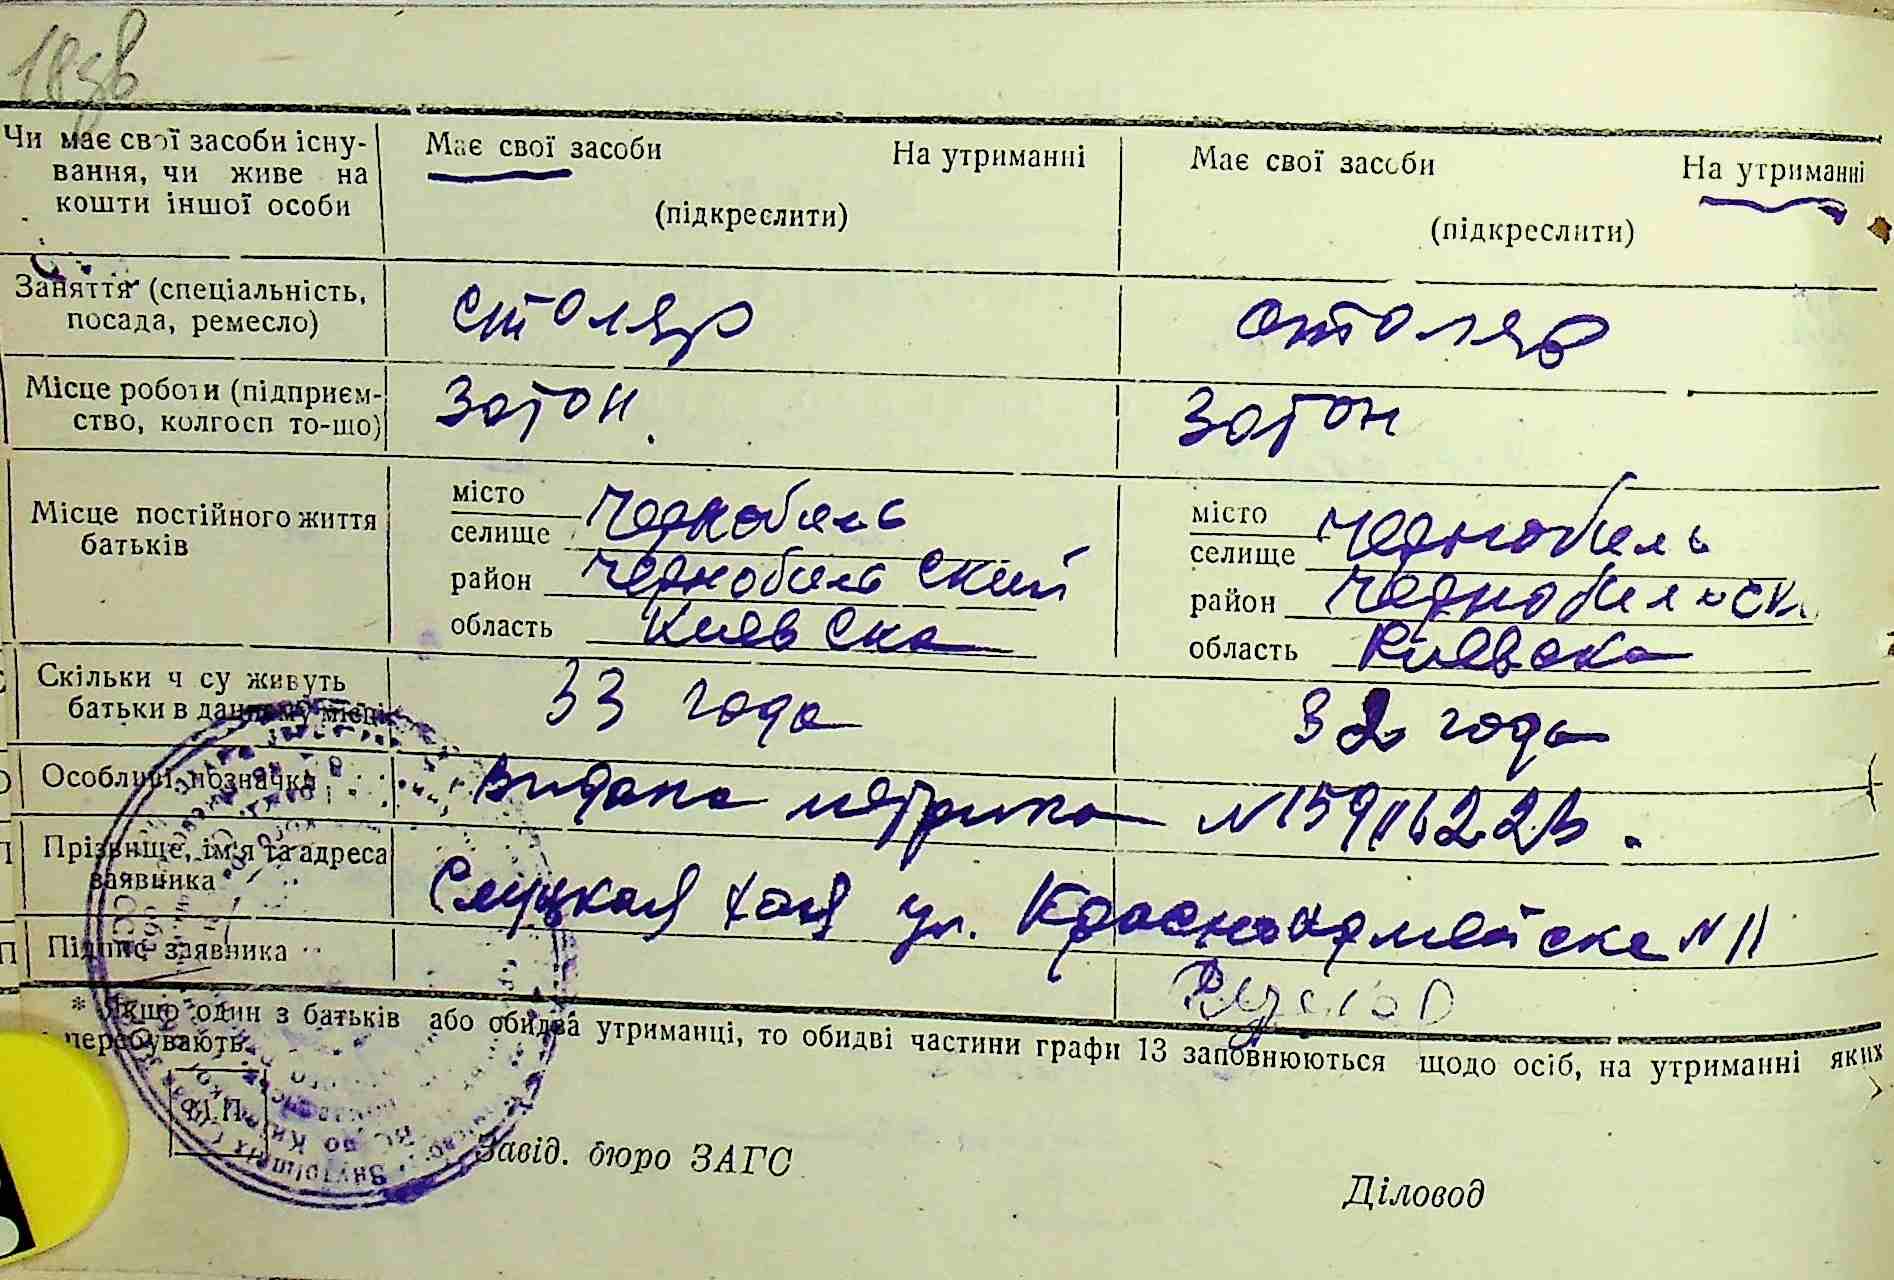 18зв
Чи має свої засоби існу-
вання, чи живе на
кошти іншої особи
Має свої засоби На утриманні
(підкреслити)
Має свої засоби На утриманні
(підкреслити)
Заняття (спеціальність,
посада, ремесло)
столяр
столяр
Місце роботи (підприєм-
ство, колгосп то-що)
Затон.
Затон
Місце постійного життя
батьків
місто
селище Чернобель
район Чернобельский
область Киевска
місто
селище Чернобель
район Чернобельск
область Киевска
Скільки ч су живуть
батьки в даному місці
33 года
32 года
Особливі позначки
Видана метрика №
Прізвище, ім'я та адреса
заявника
Слуцкая Хая ул. Красноармейска № 11
Підпис заявника
* Якщо один з батьків або обидва утриманці, то обидві частини графи 13 заповнюються щодо осіб, на утриманні яких
перебувають.
М.П.
Завід. бюро ЗАГС
Діловод